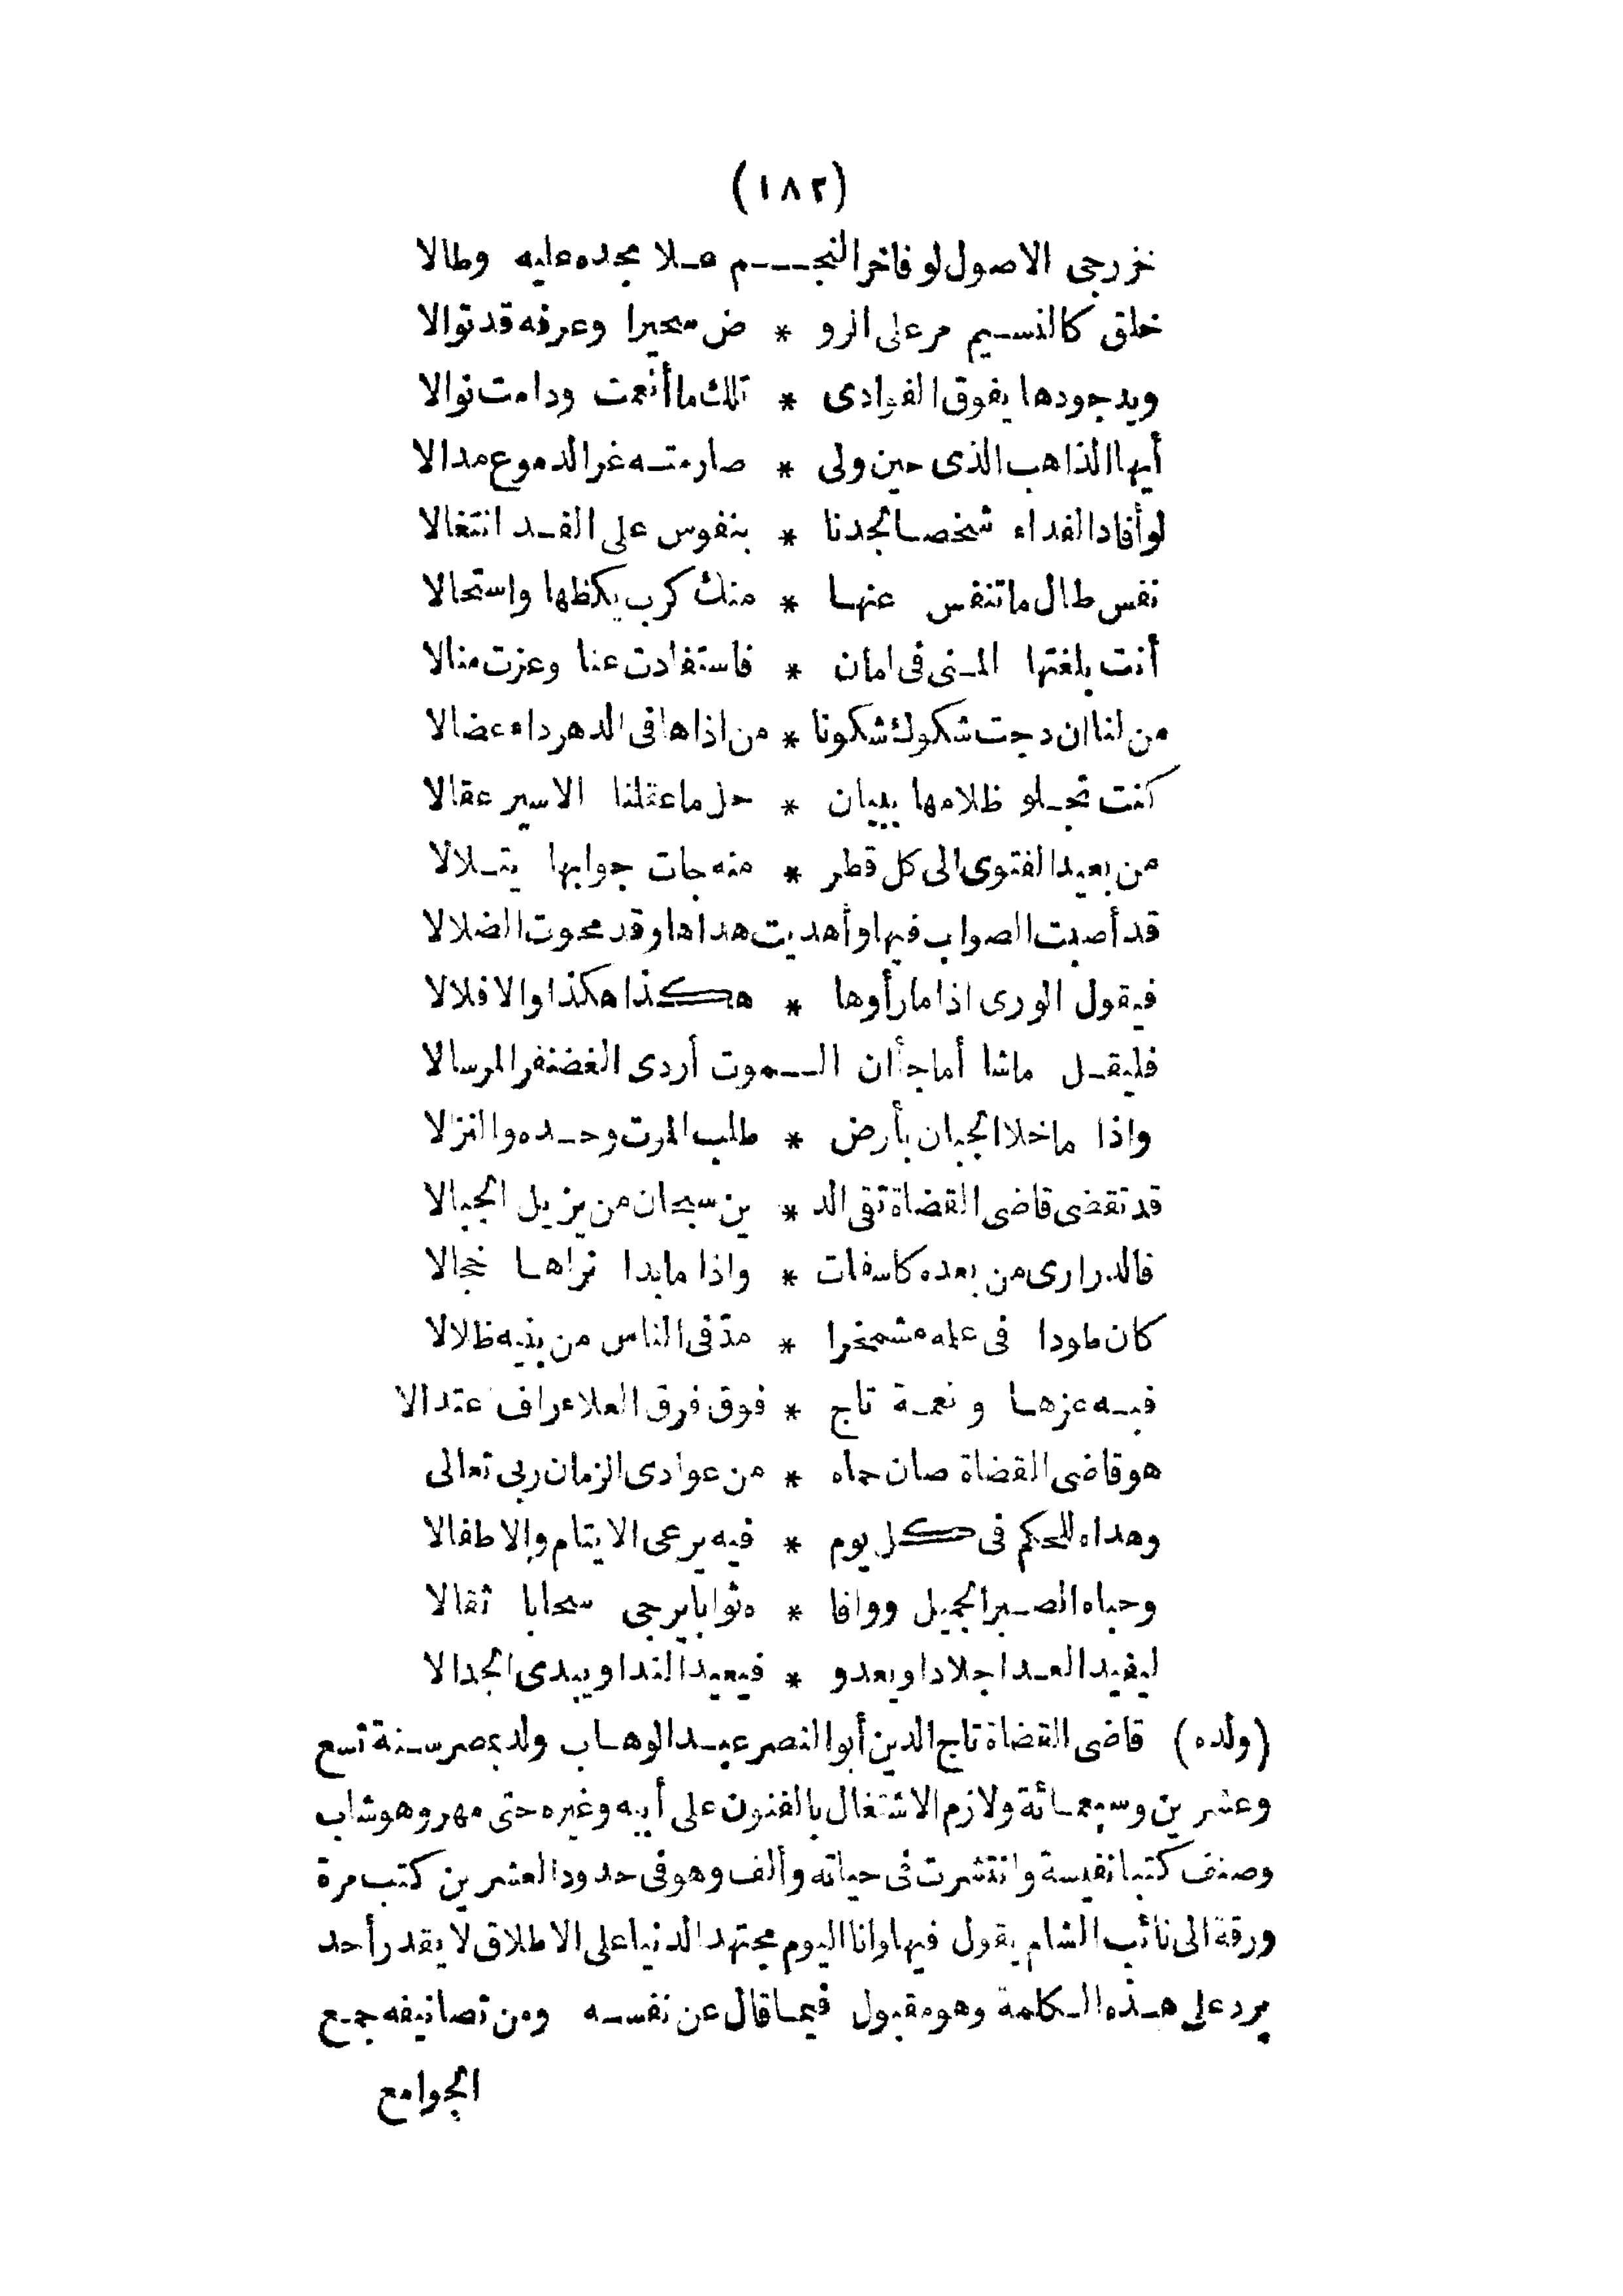 (١٨٢)
خزرجى الاصول لو فاخر النجـــم عـلا مجده عليه وطالا
خلق كالنسيم مر على الرو * ض سحيرا وعرفه قد توالا
ويد جودها يفوق الغوادى * تلك ما أنعمت ودامت نوالا
أيها الذاهب الذى حين ولى * صار منه غر الدموع مدالا
لو أفاد الفداء شخصا لجدنا * بنفوس على الفد انتغالا
نفس طال ما تنفس عنها * منك كرب يكظها واستحالا
أنت بلغتها المنى فى امان * فاستفادت عنا وعزت منالا
من لنا ان دجت شكوك شكونا * من اذاها فى الدهر داء عضالا
كنت تجلو ظلامها ببيان * حل ما عقلنا الاسير عقالا
من بعيد الفتوى الى كل قطر * منه جات جوابها يتلالا
قد أصبت الصواب فيها وأهديت هداها وقد محوت الضلالا
فيقول الورى اذا ما رأوها * هكذا هكذا والا فلالا
فليقل ماشا أما جأ ان الـــموت أردى الغضنفر المرسالا
واذا ما خلا الجبان بأرض * طلب المرت وحده والنزلا
قد تقضى قاضى القضاة تقى الد * ين سبحان من يزيل الجبالا
فالدرارى من بعده كاسفات * واذا ما بدا تراها خجالا
كان طودا فى علمه مشمخرا * مدّ فى الناس من بنيه ظلالا
فيه عزها ونعمة تاج * فوق فرق العلاء راف عتدالا
هو قاضى القضاة صان حماه * من عوادى الزمان ربى تعالى
وهداه للحكم فى كل يوم * فيه يرعى الايتام والاطفالا
وحباه الصبر الجميل ووافا * ه ثوابا يرجى سحابا ثقالا
ليفيد العدا جلادا ويعدو * فيعيد الندا ويبدى الجدالا
(ولده) قاضى القضاة تاج الدين أبو النصر عبد الوهاب ولد بمصر سنة تسع
وعشرين وسبعمائة ولازم الاشتغال بالفنون على أبيه وغيره حتى مهر وهو شاب
وصنف كتبا نفيسة وانتشرت فى حياته وألف وهو فى حدود العشرين كتب مرة
ورقة الى نائب الشام يقول فيها وانا اليوم مجتهد الدنيا على الاطلاق لا يقدر أحد
يرد على هذه الكلمة وهو مقبول فيما قال عن نفسه ومن تصانيفه جمع
الجوامع